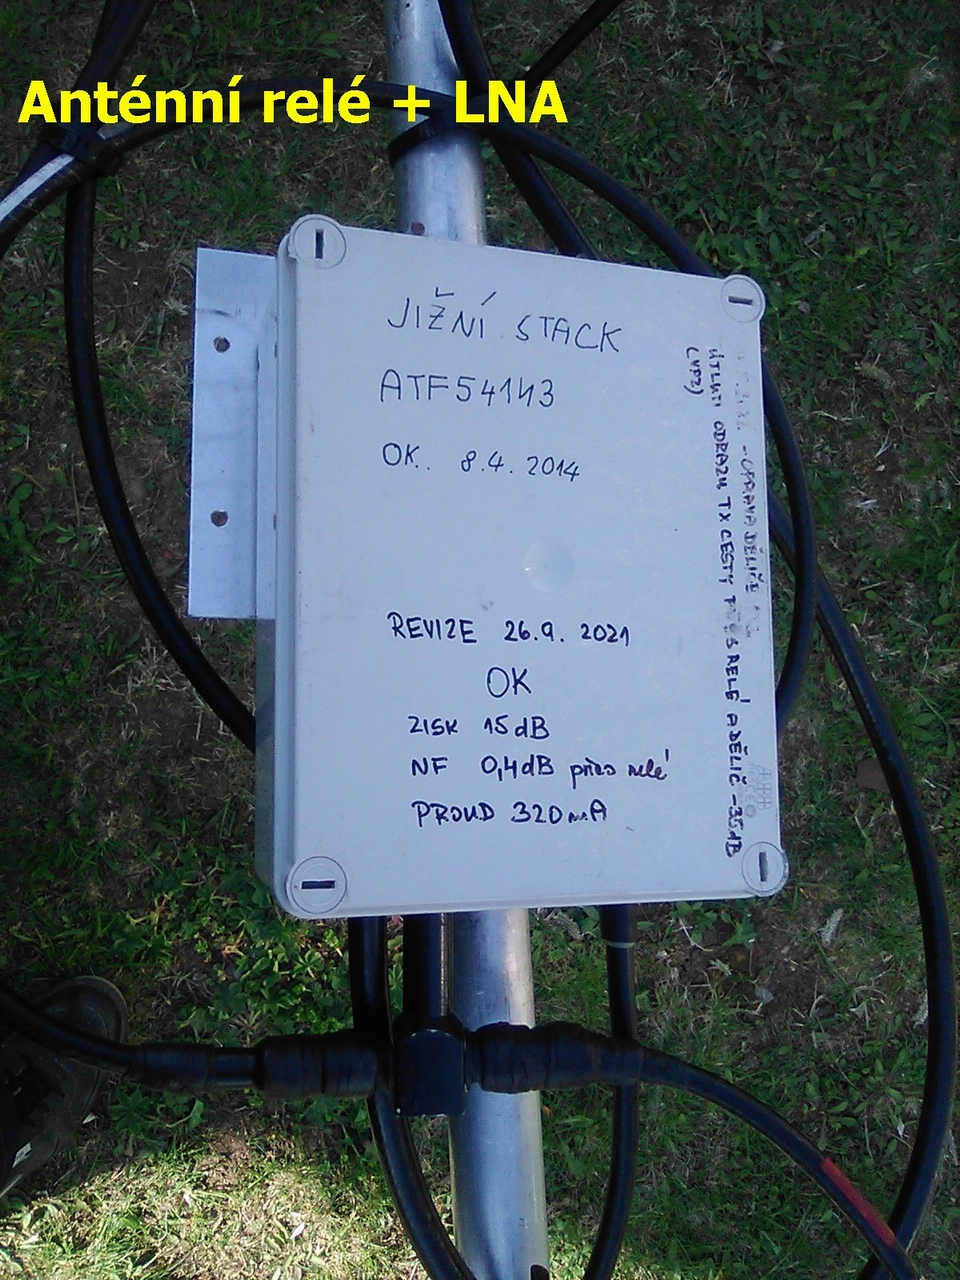 Anténní relé + LNA
JIŽNÍ STACK
ATF54143
OK. 8.4. 2014
REVIZE 26.9. 2021
OK
ZISK 15dB
NF 0,4dB přes relé
PROUD 320mA
-OPRAVA DĚLIČE
ÚTLUM ODRAZU TX CESTY PŘES RELÉ A DĚLIČ -35dB
ABB